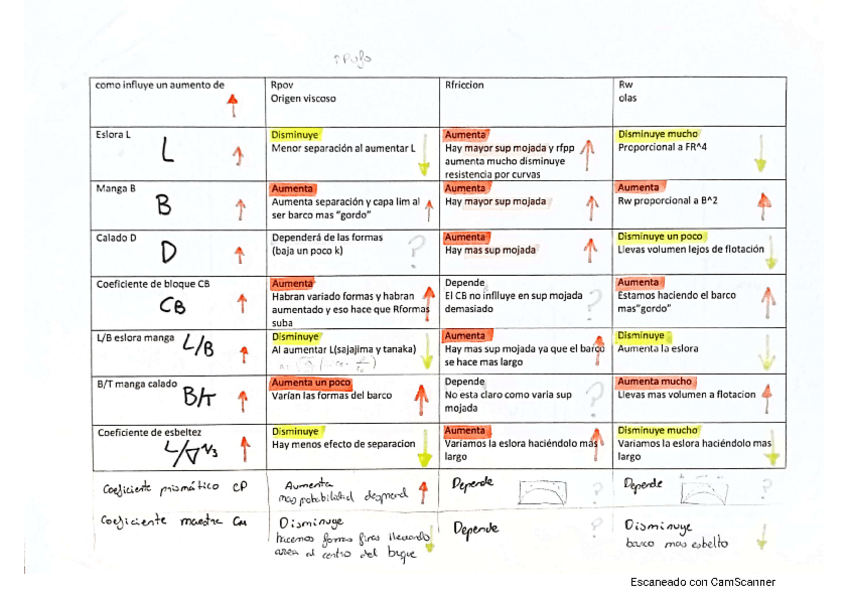 como influye un aumento de
Rpov
Origen viscoso
Rfriccion
Rw
olas
Eslora L
L
Disminuye
Menor separación al aumentar L
Aumenta
Hay mayor sup mojada y rfpp
aumenta mucho disminuye
resistencia por curvas
Disminuye mucho
Proporcional a FR^4
Manga B
B
Aumenta
Aumenta separación y capa lim al
ser barco mas "gordo"
Aumenta
Hay mayor sup mojada
Aumenta
Rw proporcional a B^2
Calado D
D
Dependerá de las formas
(baja un poco k)
?
Aumenta
Hay mas sup mojada
Disminuye un poco
Llevas volumen lejos de flotación
Coeficiente de bloque CB
CB
Aumenta
Habran variado formas y habran
aumentado y eso hace que Rformas
suba
Depende
El CB no infiluye en sup mojada
demasiado
?
Aumenta
Estamos haciendo el barco
mas"gordo"
L/B eslora manga
L/B
Disminuye
Al aumentar L(sajajima y tanaka)
Aumenta
Hay mas sup mojada ya que el barco
se hace mas largo
Disminuye
Aumenta la eslora
B/T manga calado
B/T
Aumenta un poco
Varían las formas del barco
Depende
No esta claro como varia sup
mojada
?
Aumenta mucho
Llevas mas volumen a flotacion
Coeficiente de esbeltez
L/∇^1/3
Disminuye
Hay menos efecto de separacion
Aumenta
Variamos la eslora haciéndolo mas
largo
Disminuye mucho
Variamos la eslora haciéndolo mas
largo
Coeficiente prismático CP
Aumenta
mas probabilidad desprend
Depende
?
Depende
?
Coeficiente maestra CM
Disminuye
hacemos formas finas llevando
area al centro del buque
Depende
?
Disminuye
barco mas esbelto
Escaneado con CamScanner